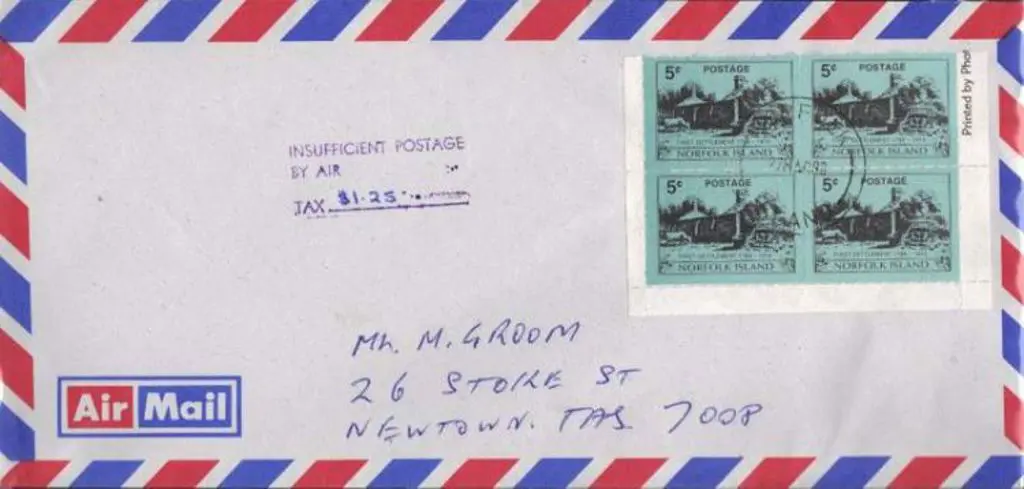 5c POSTAGE
NORFOLK ISLAND
5c POSTAGE
NORFOLK ISLAND
5c POSTAGE
FIRST SETTLEMENT 1788 - 1814
NORFOLK ISLAND
5c POSTAGE
FIRST SETTLEMENT 1788 - 1814
NORFOLK ISLAND
Printed by Phot
INSUFFICIENT POSTAGE
BY AIR
TAX $1.25
Mr. M. GROOM
26 STOKE ST
NEWTOWN. TAS 7008
Air Mail